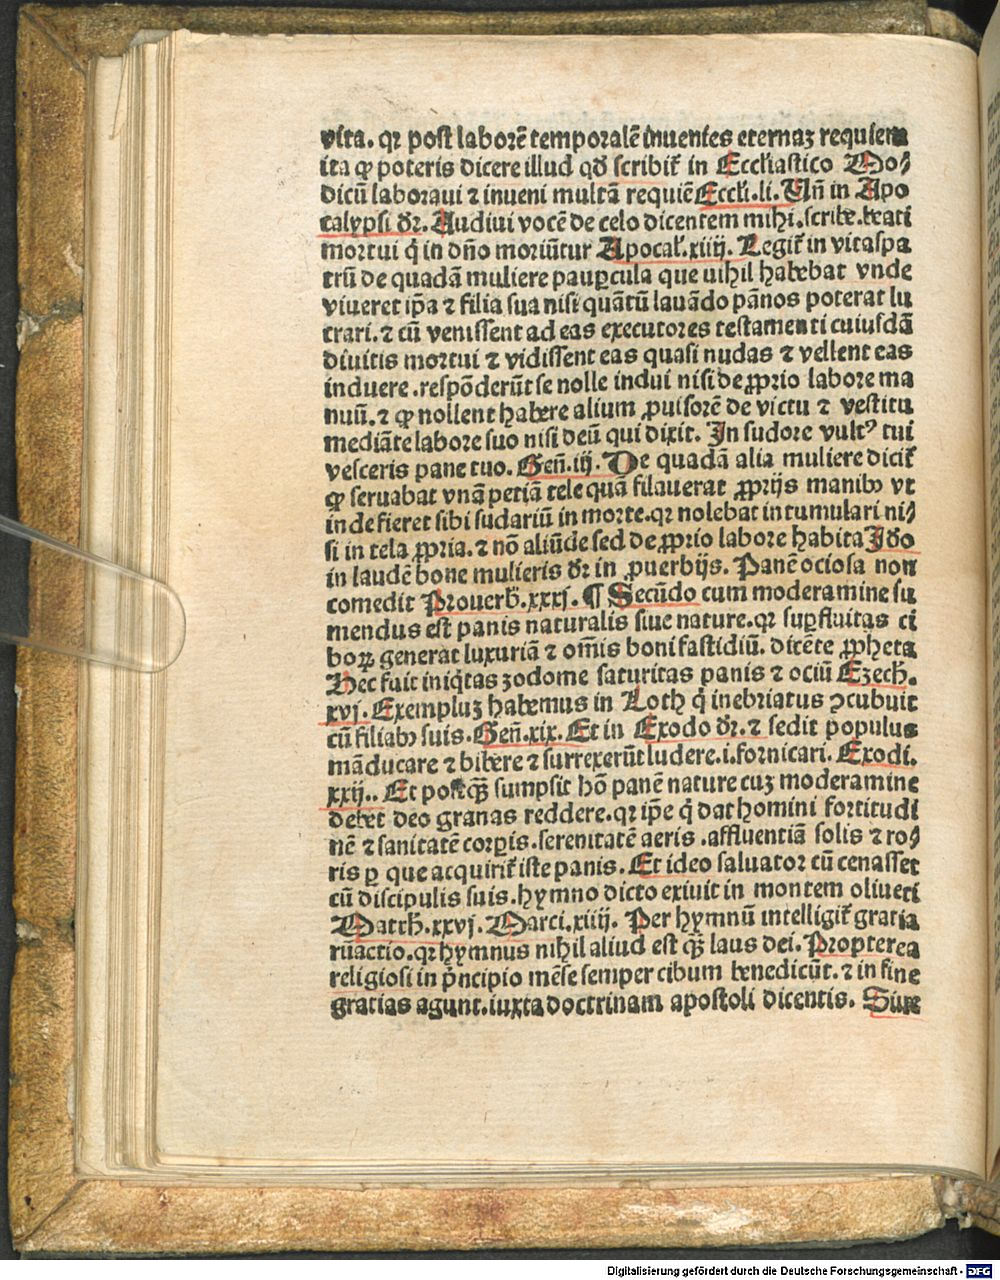 vita. qꝛ post laborē temporalē inuenies eternaz requiem
ita qꝙ poteris dicere illud qđ scribit᷑ in Ecclꝭiastico Mo⸗
dicū laboraui ⁊ inueni multā requiē Eccłi.li. Uñ in Apo
calypsi dꝛ. Audiui vocē de celo dicentem mihi. scribe. beati
mortui q̇ in dño moriūntur Apocal̉.xiiij. Legit᷑ in vitaspa
trū de quadā muliere paupꝑcula que uihil habebat vnde
viueret ip̄a ⁊ filia sua nisi quātū lauādo pānos poterat lu
crari. ⁊ cū venissent ad eas executores testamenti cuiusdā
diuitis mortui ⁊ vidissent eas quasi nudas ⁊ vellent eas
induere. respōderūt se nolle indui nisi de ꝓprio labore ma
nuū. ⁊ ꝙ nollent habere alium ꝓuisorē de victu ⁊ vestitu
mediāte labore suo nisi deū qui dixit. In sudore vultꝰ tui
vesceris pane tuo. Geñ.iij. De quadā alia muliere dicit᷑
ꝙ seruabat vnā petiā tele quā filauerat ꝓprijs manibꝫ vt
inde fieret sibi sudariū in morte. qꝛ nolebat intumulari ni⸗
si in tela ꝓpria. ⁊ nō aliūde sed de ꝓprio labore habita Jdo
in laudē bone mulieris dꝛ in ꝓuerbijs. Panē ociosa non
comedit Prouerb̄.xxxj. ¶ Secūdo cum moderamine su
mendus est panis naturalis siue nature. qꝛ suꝑfluitas ci
boꝝ generat luxuriā ⁊ om̄is boni fastidiū. dicēte ꝓpheta
Hec fuit iniq̇tas zodome saturitas panis ⁊ ociū Ezech̄.
xvj. Exempluz habemus in Loth q̇ inebriatus ꝯcubuit
cū filiabꝫ suis. Geñ.xix. Et in Exodo dꝛ. ⁊ sedit populus
māducare ⁊ bibere ⁊ surrexerūt ludere. i. fornicari. Exodi.
xxij.. Et postqꝫ̄ sumpsit hō panē nature cuz moderamine
debet deo gratias reddere. qꝛ ip̄e q̇ dat homini fortitudi
nē ⁊ sanitatē corꝑis. serenitatē aeris. affluentiā solis ⁊ ro⸗
ris ꝑ que acquirit᷑ iste panis. Et ideo saluator cū cenasset
cū discipulis suis. hymno dicto exiuit in montem oliueti
Matth̄.xxvj. Marci.xiiij. Per hymnū intelligit᷑ gratia
rūactio. qꝛ hymnus nihil aliud est qꝫ̄ laus dei. Propterea
religiosi in p̄ncipio mēse semper cibum benedicūt. ⁊ in fine
gratias agunt. iuxta doctrinam apostoli dicentis. Siue
Digitalisierung gefördert durch die Deutsche Forschungsgemeinschaft - DFG